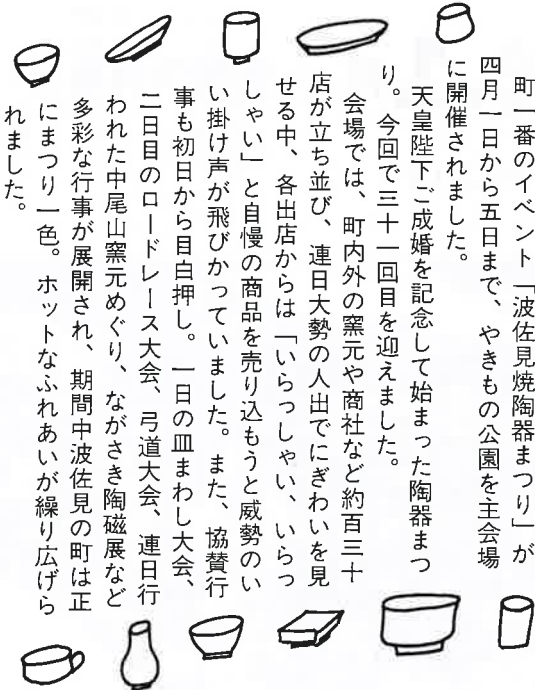 町一番のイベント「波佐見焼陶器まつり」が
四月一日から五日まで、やきもの公園を主会場
に開催されました。
天皇陛下ご成婚を記念して始まった陶器まつ
り。今回で三十一回目を迎えました。
会場では、町内外の窯元や商社など約百三十
店が立ち並び、連日大勢の人出でにぎわいを見
せる中、各出店からは「いらっしゃい、いらっ
しゃい」と自慢の商品を売り込もうと威勢のい
い掛け声が飛びかっていました。また、協賛行
事も初日から目白押し。一日の皿まわし大会、
二日目のロードレース大会、弓道大会、連日行
われた中尾山窯元めぐり、ながさき陶磁展など
多彩な行事が展開され、期間中波佐見の町は正
にまつり一色。ホットなふれあいが繰り広げら
れました。